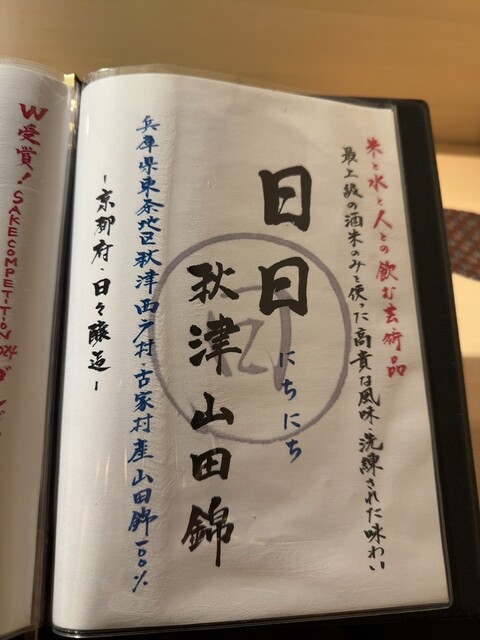 米と水と人との飲む芸術品
最上級の酒米のみを使った高貴な風味・洗練された味わい
日日
にちにち
秋津山田錦
兵庫県東条地区秋津西戸村・古家村産山田錦一〇〇%
-京都府・日々醸造-
W受賞!SAKE COMPETITION 2024